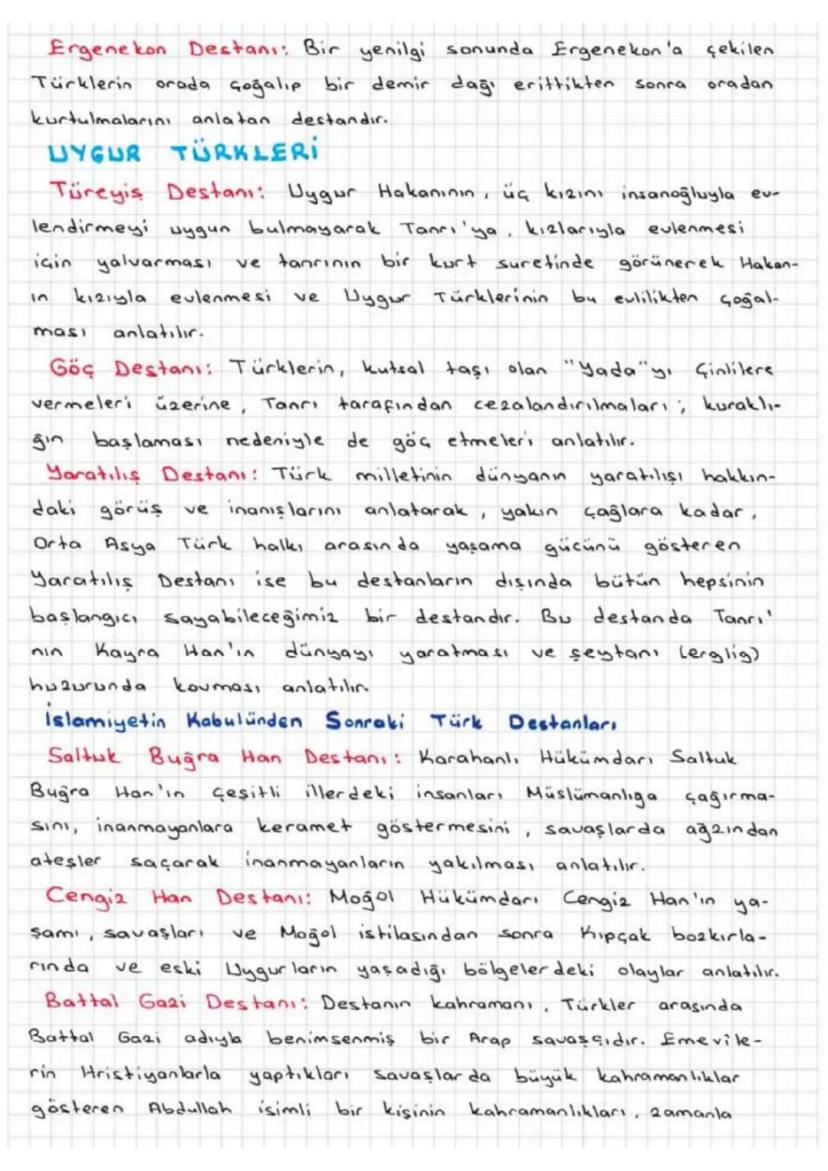 Ergenekon Destanı: Bir yenilgi sonunda Ergenekon'a çekilen
Türklerin orada çoğalıp bir demir dağı erittikten sonra oradan
kurtulmalarını anlatan destandır.
UYGUR TÜRKLERİ
Türeyiş Destanı: Uygur Hakanının, üç kızını insanoğluyla ev-
lendirmeyi uygun bulmayarak Tanrı'ya, kızlarıyla evlenmesi
için yalvarması ve tanrının bir kurt suretinde görünerek Hakan-
ın kızıyla evlenmesi ve Uygur Türklerinin bu evlilikten çoğal-
ması anlatılır.
Göç Destanı: Türklerin, kutsal taşı olan "Yada"yı Çinlilere
vermeleri üzerine, Tanrı tarafından cezalandırılmaları; kuraklı-
ğın başlaması nedeniyle de göç etmeleri anlatılır.
Yaratılış Destanı: Türk milletinin dünyanın yaratılışı hakkın-
daki görüş ve inanışlarını anlatarak, yakın çağlara kadar,
Orta Asya Türk halkı arasında yaşama gücünü gösteren
Yaratılış Destanı ise bu destanların dışında bütün hepsinin
başlangıcı sayabileceğimiz bir destandır. Bu destanda Tanrı'
nın Kayra Han'ın dünyayı yaratması ve şeytanı (erglig)
huzurunda kovması anlatılır.
İslamiyetin Kabulünden Sonraki Türk Destanları
Saltuk Buğra Han Destanı: Karahanlı Hükümdarı Saltuk
Buğra Han'ın çeşitli illerdeki insanları Müslümanlıga çağırma-
sını, inanmayanlara keramet göstermesini, savaşlarda ağzından
ateşler saçarak inanmayanların yakılması anlatılır.
Cengiz Han Destanı: Moğol Hükümdarı Cengiz Han'ın ya-
şamı, savaşları ve Moğol istilasından sonra Kıpçak bozkırla-
rında ve eski Uygurların yaşadığı bölgelerdeki olaylar anlatılır.
Battal Gazi Destanı: Destanın kahramanı, Türkler arasında
Battal Gazi adıyla benimsenmiş bir Arap savaşçıdır. Emevile-
rin Hristiyanlarla yaptıkları savaşlarda büyük kahramanlıklar
gösteren Abdullah isimli bir kişinin kahramanlıkları, zamanla